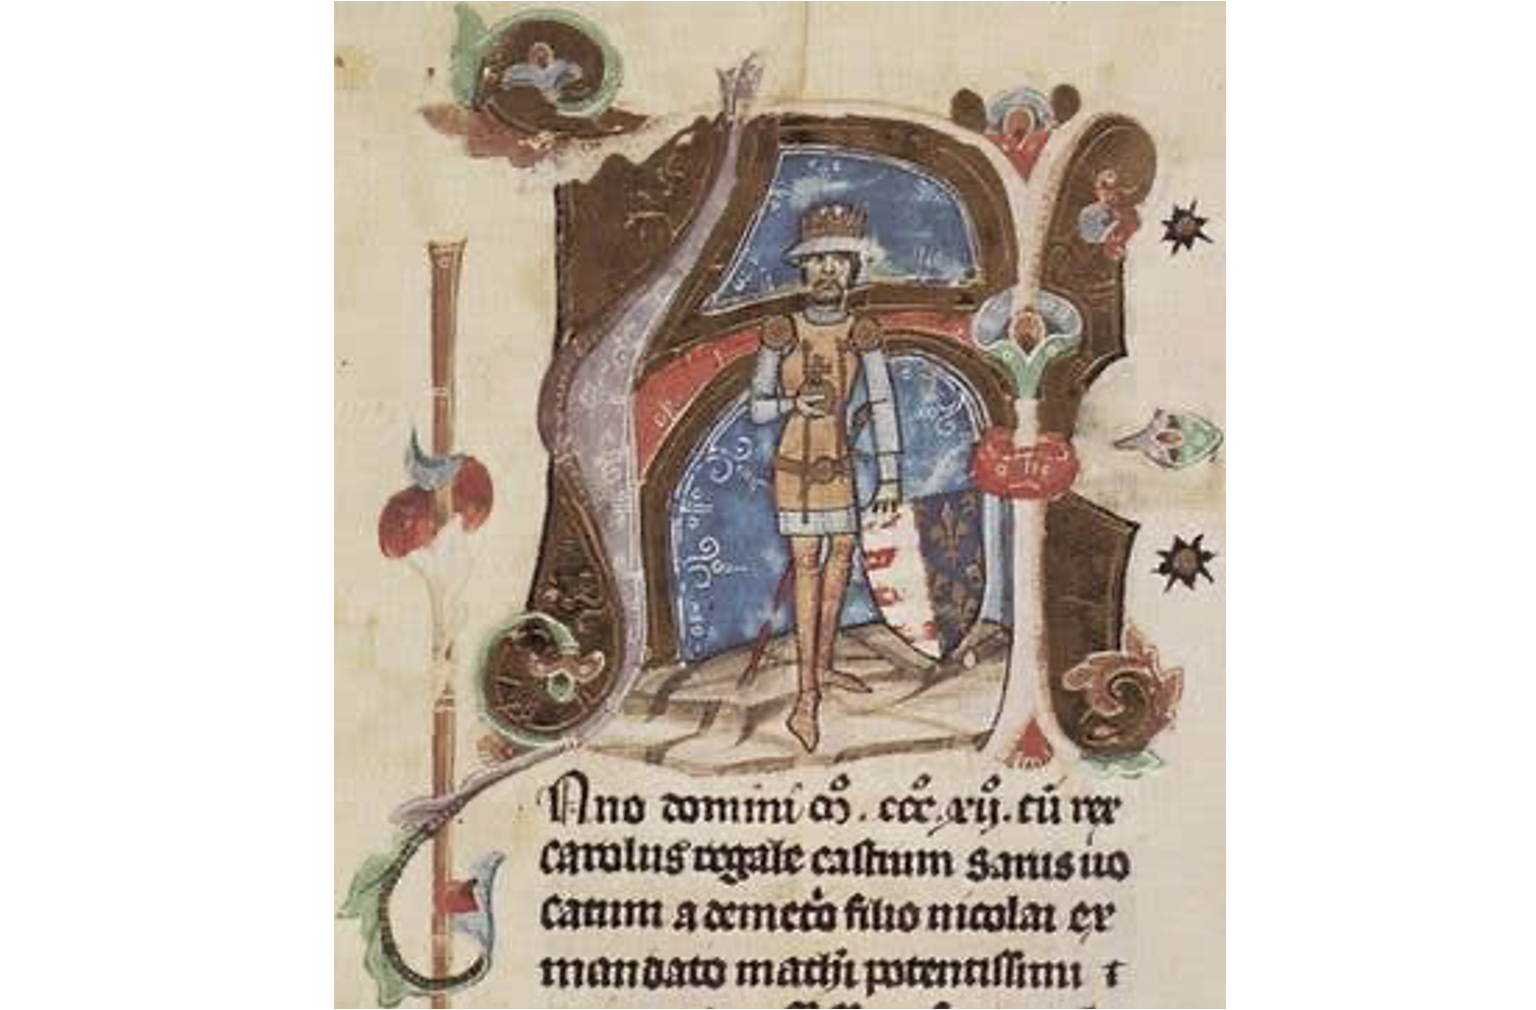 Ano domini mͦ. cccͦ. xijͦ. cū rex
carolus regale castrum Sarus uo
catum a demetͦo filio nicolai ex
mandato mathi potentissimi ⁊